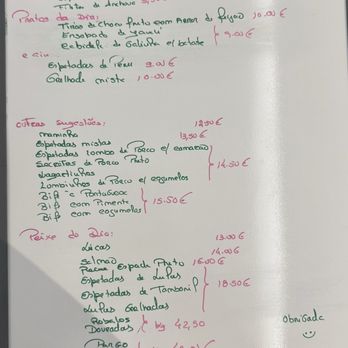 Pratos do Dia:
Tiras de Choco frito com Arroz de feijão 10.00 €
Ensopado de
de Galinha c/ 9.00 €
Espetadas de Peru 9.00 €
Grelhada mista 10.00 €
outras sugestões: 12,50 €
maminha 13,50 €
Espetadas mistas
Espetadas Lombo de Porco c/ camarão
Secretos de Porco Preto 14.50 €
Lagartinhos
Lombinhos de Porco c/ cogumelos
Bife à Portuguesa
Bife com Pimenta 15.50 €
Bife com cogumelos
Peixe do Dia:
Lulas 13.00 €
Salmão 14.00 €
Espada Preto 16.00 €
Espetadas de Lulas
Espetadas de Tamboril 18.50 €
Lulas Grelhadas
Robalos
Douradas kg 42,50
Obrigada
Pargo